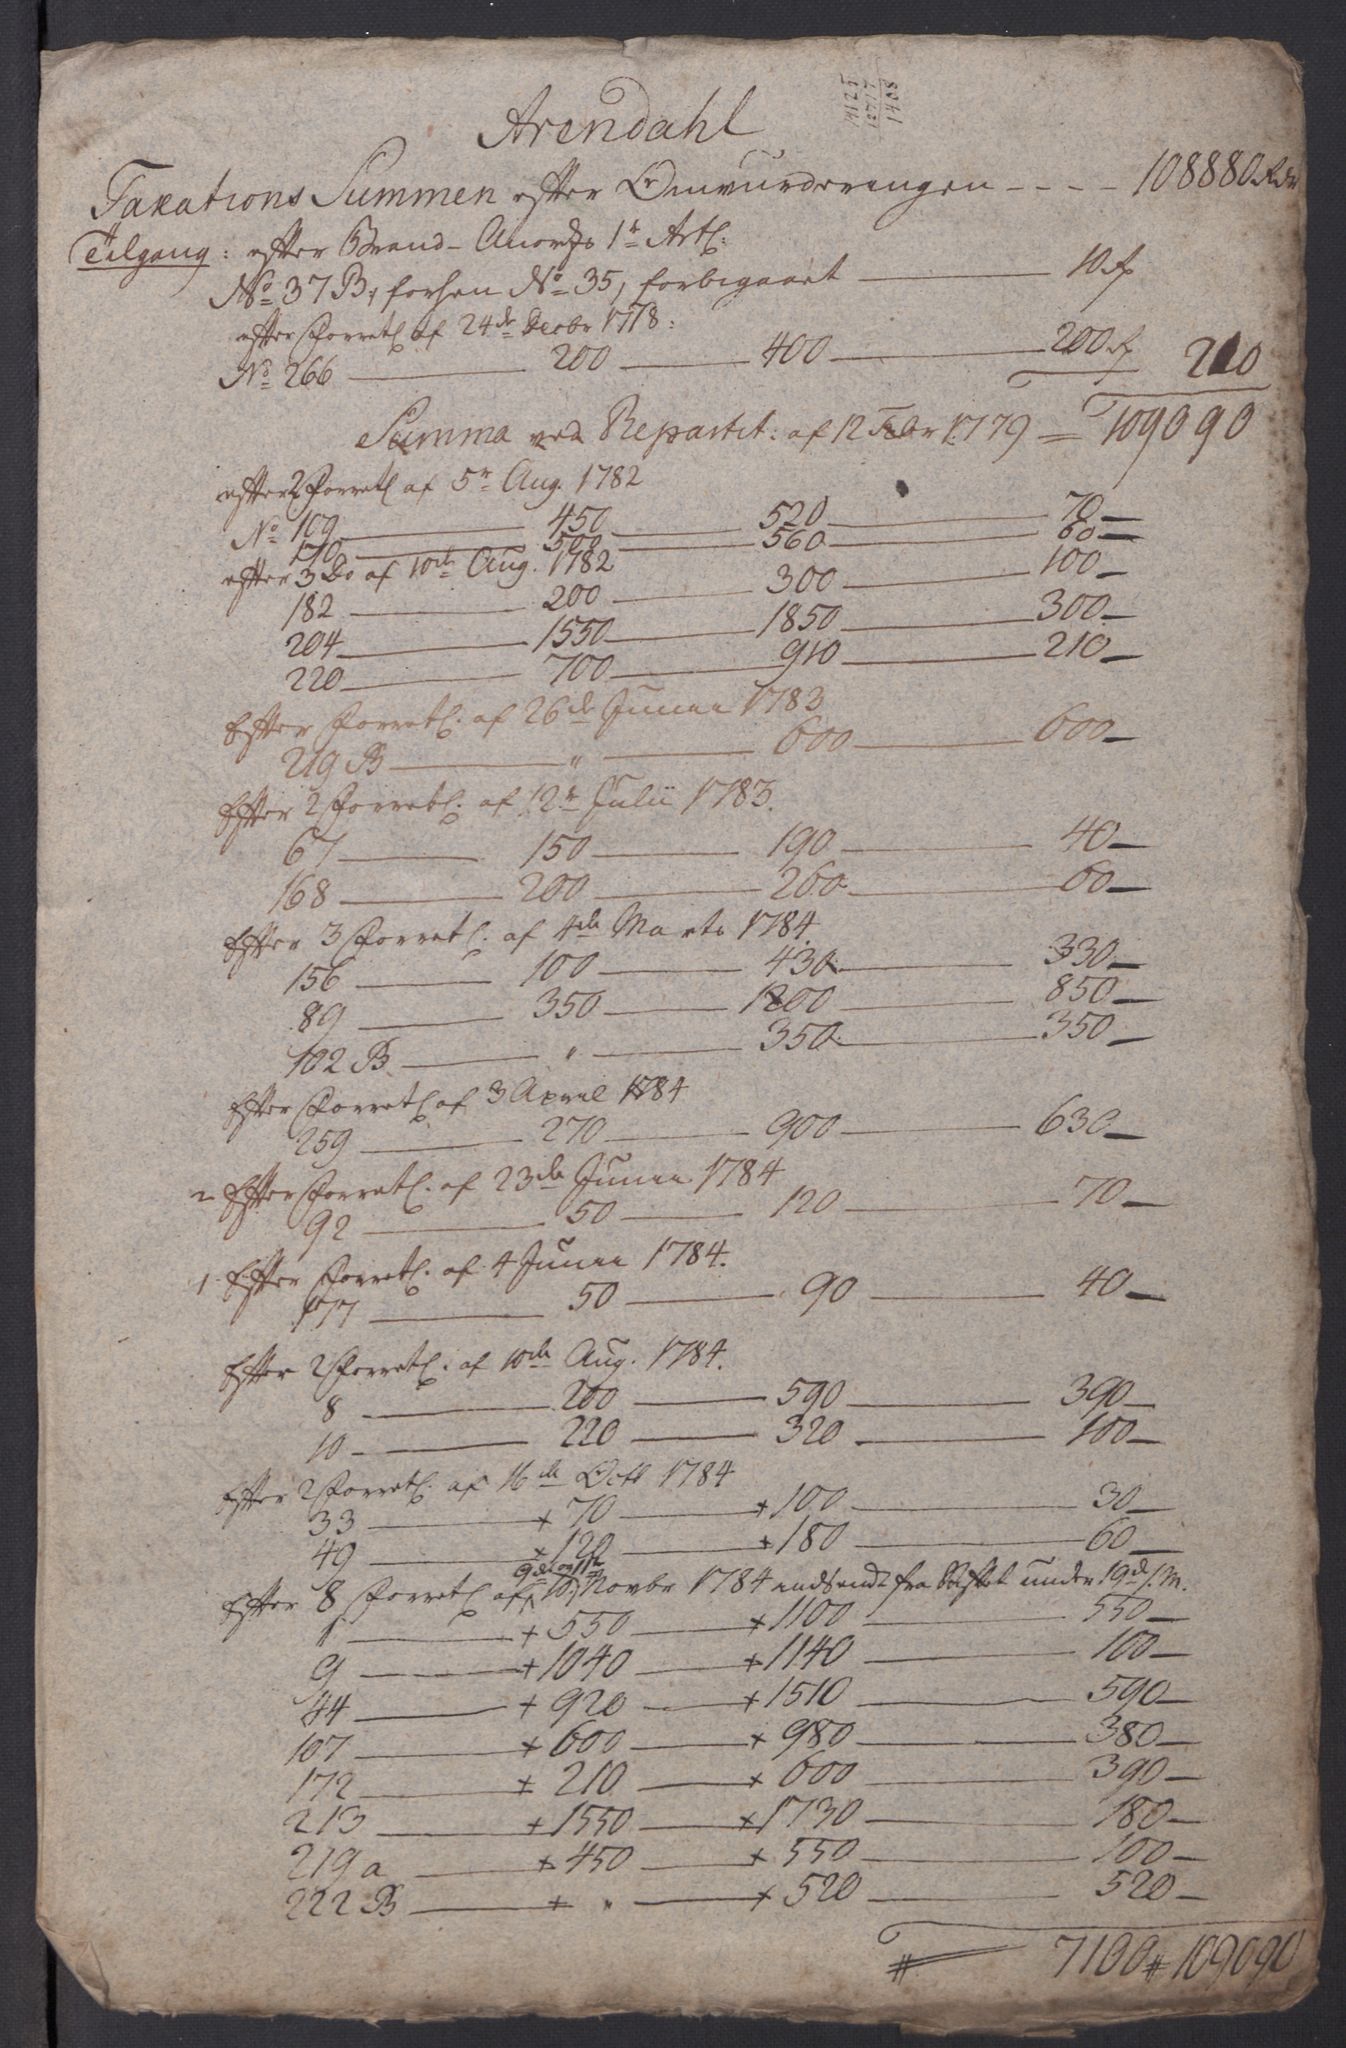 14125
12717
1408
Arendahl
Taxations Summen efter Omvurderingen - - - - 108880 Rdr
Tilgang: efter Brand-Anordg 1r Artl:
No 37 B, forhen No 35, forbigaaet — 10 rd
efter Forretl af 24de Decbr 1778:
No 266 — 200 — 400 — 200 rd 210
Summa ved Repartit: af 12 Febr 1779 = 109090
efter 2 Forretl af 5r Aug. 1782
No 109 — 450 — 520 — 70 —
110 — 500 — 560 — 60 —
efter 3 Do af 10de Aug. 1782
182 — 200 — 300 — 100 —
204 — 1550 — 1850 — 300 —
220 — 700 — 910 — 210 —
Efter Forretl. af 26de Junii 1783
219 B — " — 600 — 600 —
Efter 2 Forretl. af 12r Julii 1783.
67 — 150 — 190 — 40 —
168 — 200 — 260 — 60 —
Efter 3 Forretl. af 4de Marts 1784.
156 — 100 — 430 — 330 —
89 — 350 — 1200 — 850 —
102 B — " — 350 — 350 —
Efter Forretl af 3 April 1784
259 — 270 — 900 — 630 —
2 Efter Forretl. af 23de Junii 1784
92 — 50 — 120 — 70 —
1 Efter Forretl. af 4 Junii 1784.
177 — 50 — 90 — 40 —
Efter 2 Forretl. af 10de Aug. 1784.
8 — 200 — 590 — 390 —
10 — 220 — 320 — 100 —
Efter 2 Forretl. af 16de Octb 1784
33 — + 70 — + 100 — 30 —
49 — + 120 — + 180 — 60 —
9de og 11te
Efter 8 Forretl af 10 Novbr 1784 indsendt fra Stiftet under 19de s. M.
1 — + 550 — + 1100 — 550 —
9 — + 1040 — + 1140 — 100 —
44 — + 920 — + 1510 — 590 —
107 — + 600 — + 980 — 380 —
172 — + 210 — + 600 — 390 —
213 — + 1550 — + 1730 — 180 —
219 a — + 450 — + 550 — 100 —
222 B — + " — + 520 — 520 —
# — 7100 # 109090